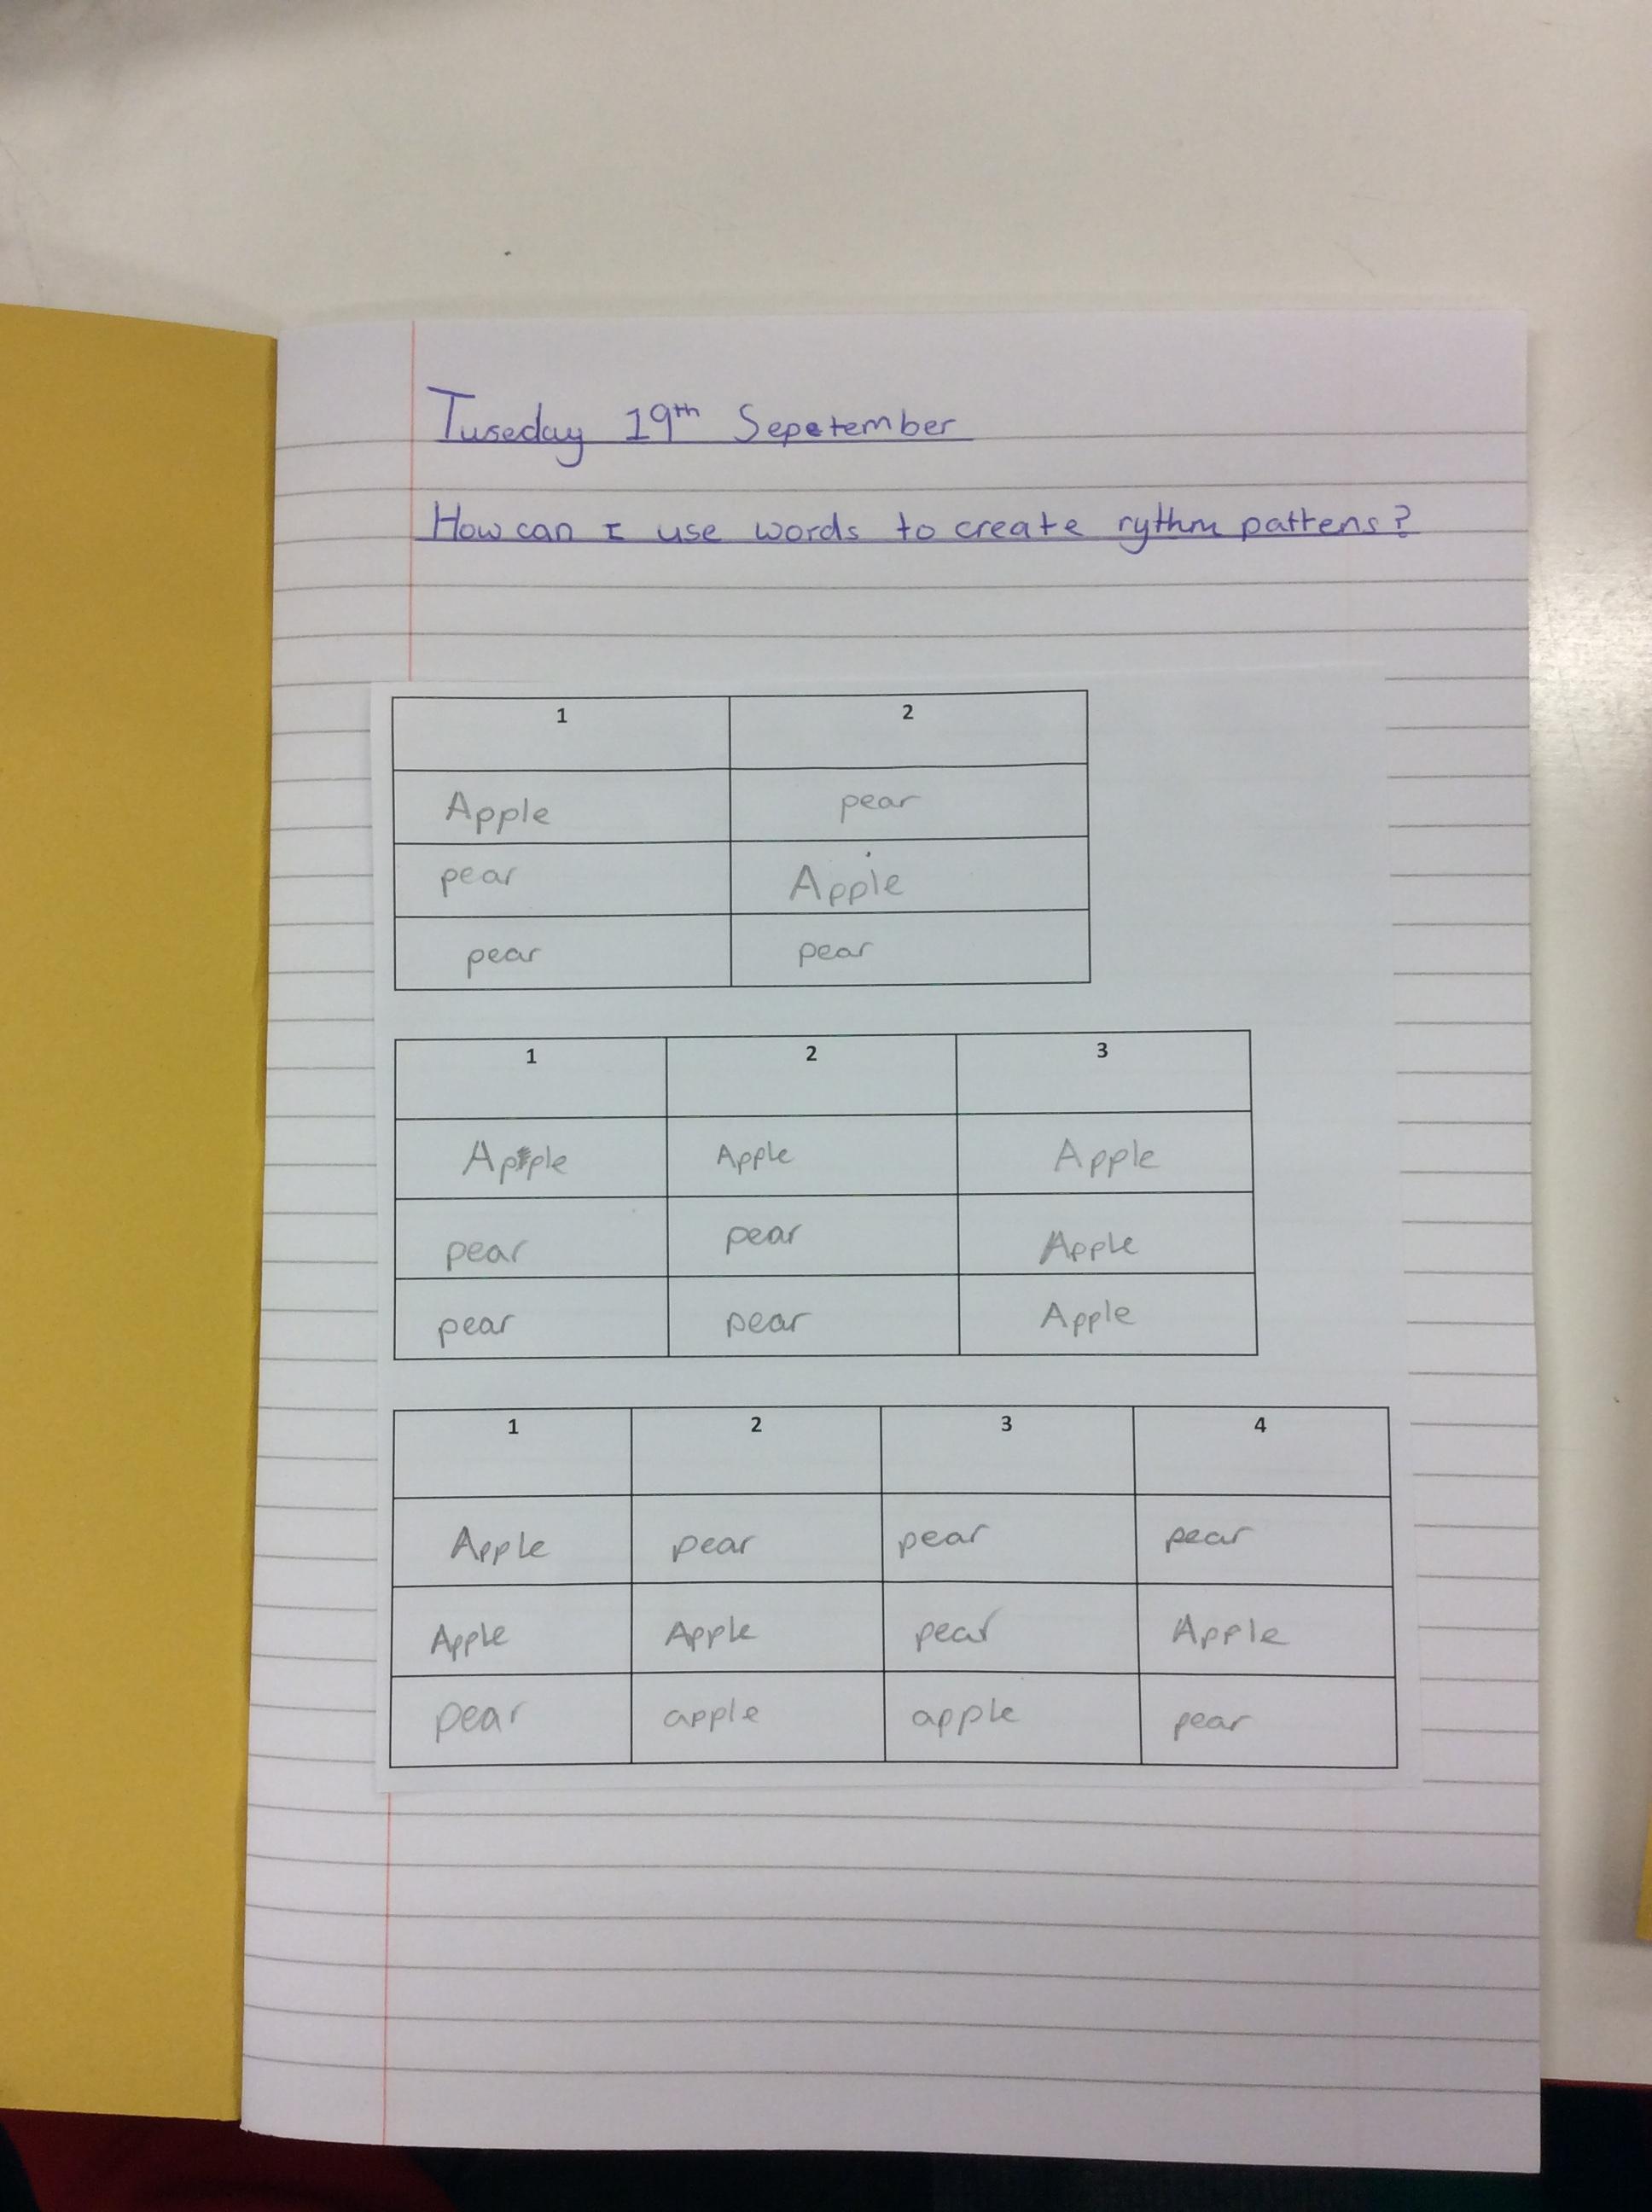 Tuseday 19th Sepetember
How can I use words to create rythm pattens?
1 2
Apple pear
pear Apple
pear pear
1 2 3
Apple Apple Apple
pear pear Apple
pear pear Apple
1 2 3 4
Apple pear pear pear
Apple Apple pear Apple
pear apple apple pear